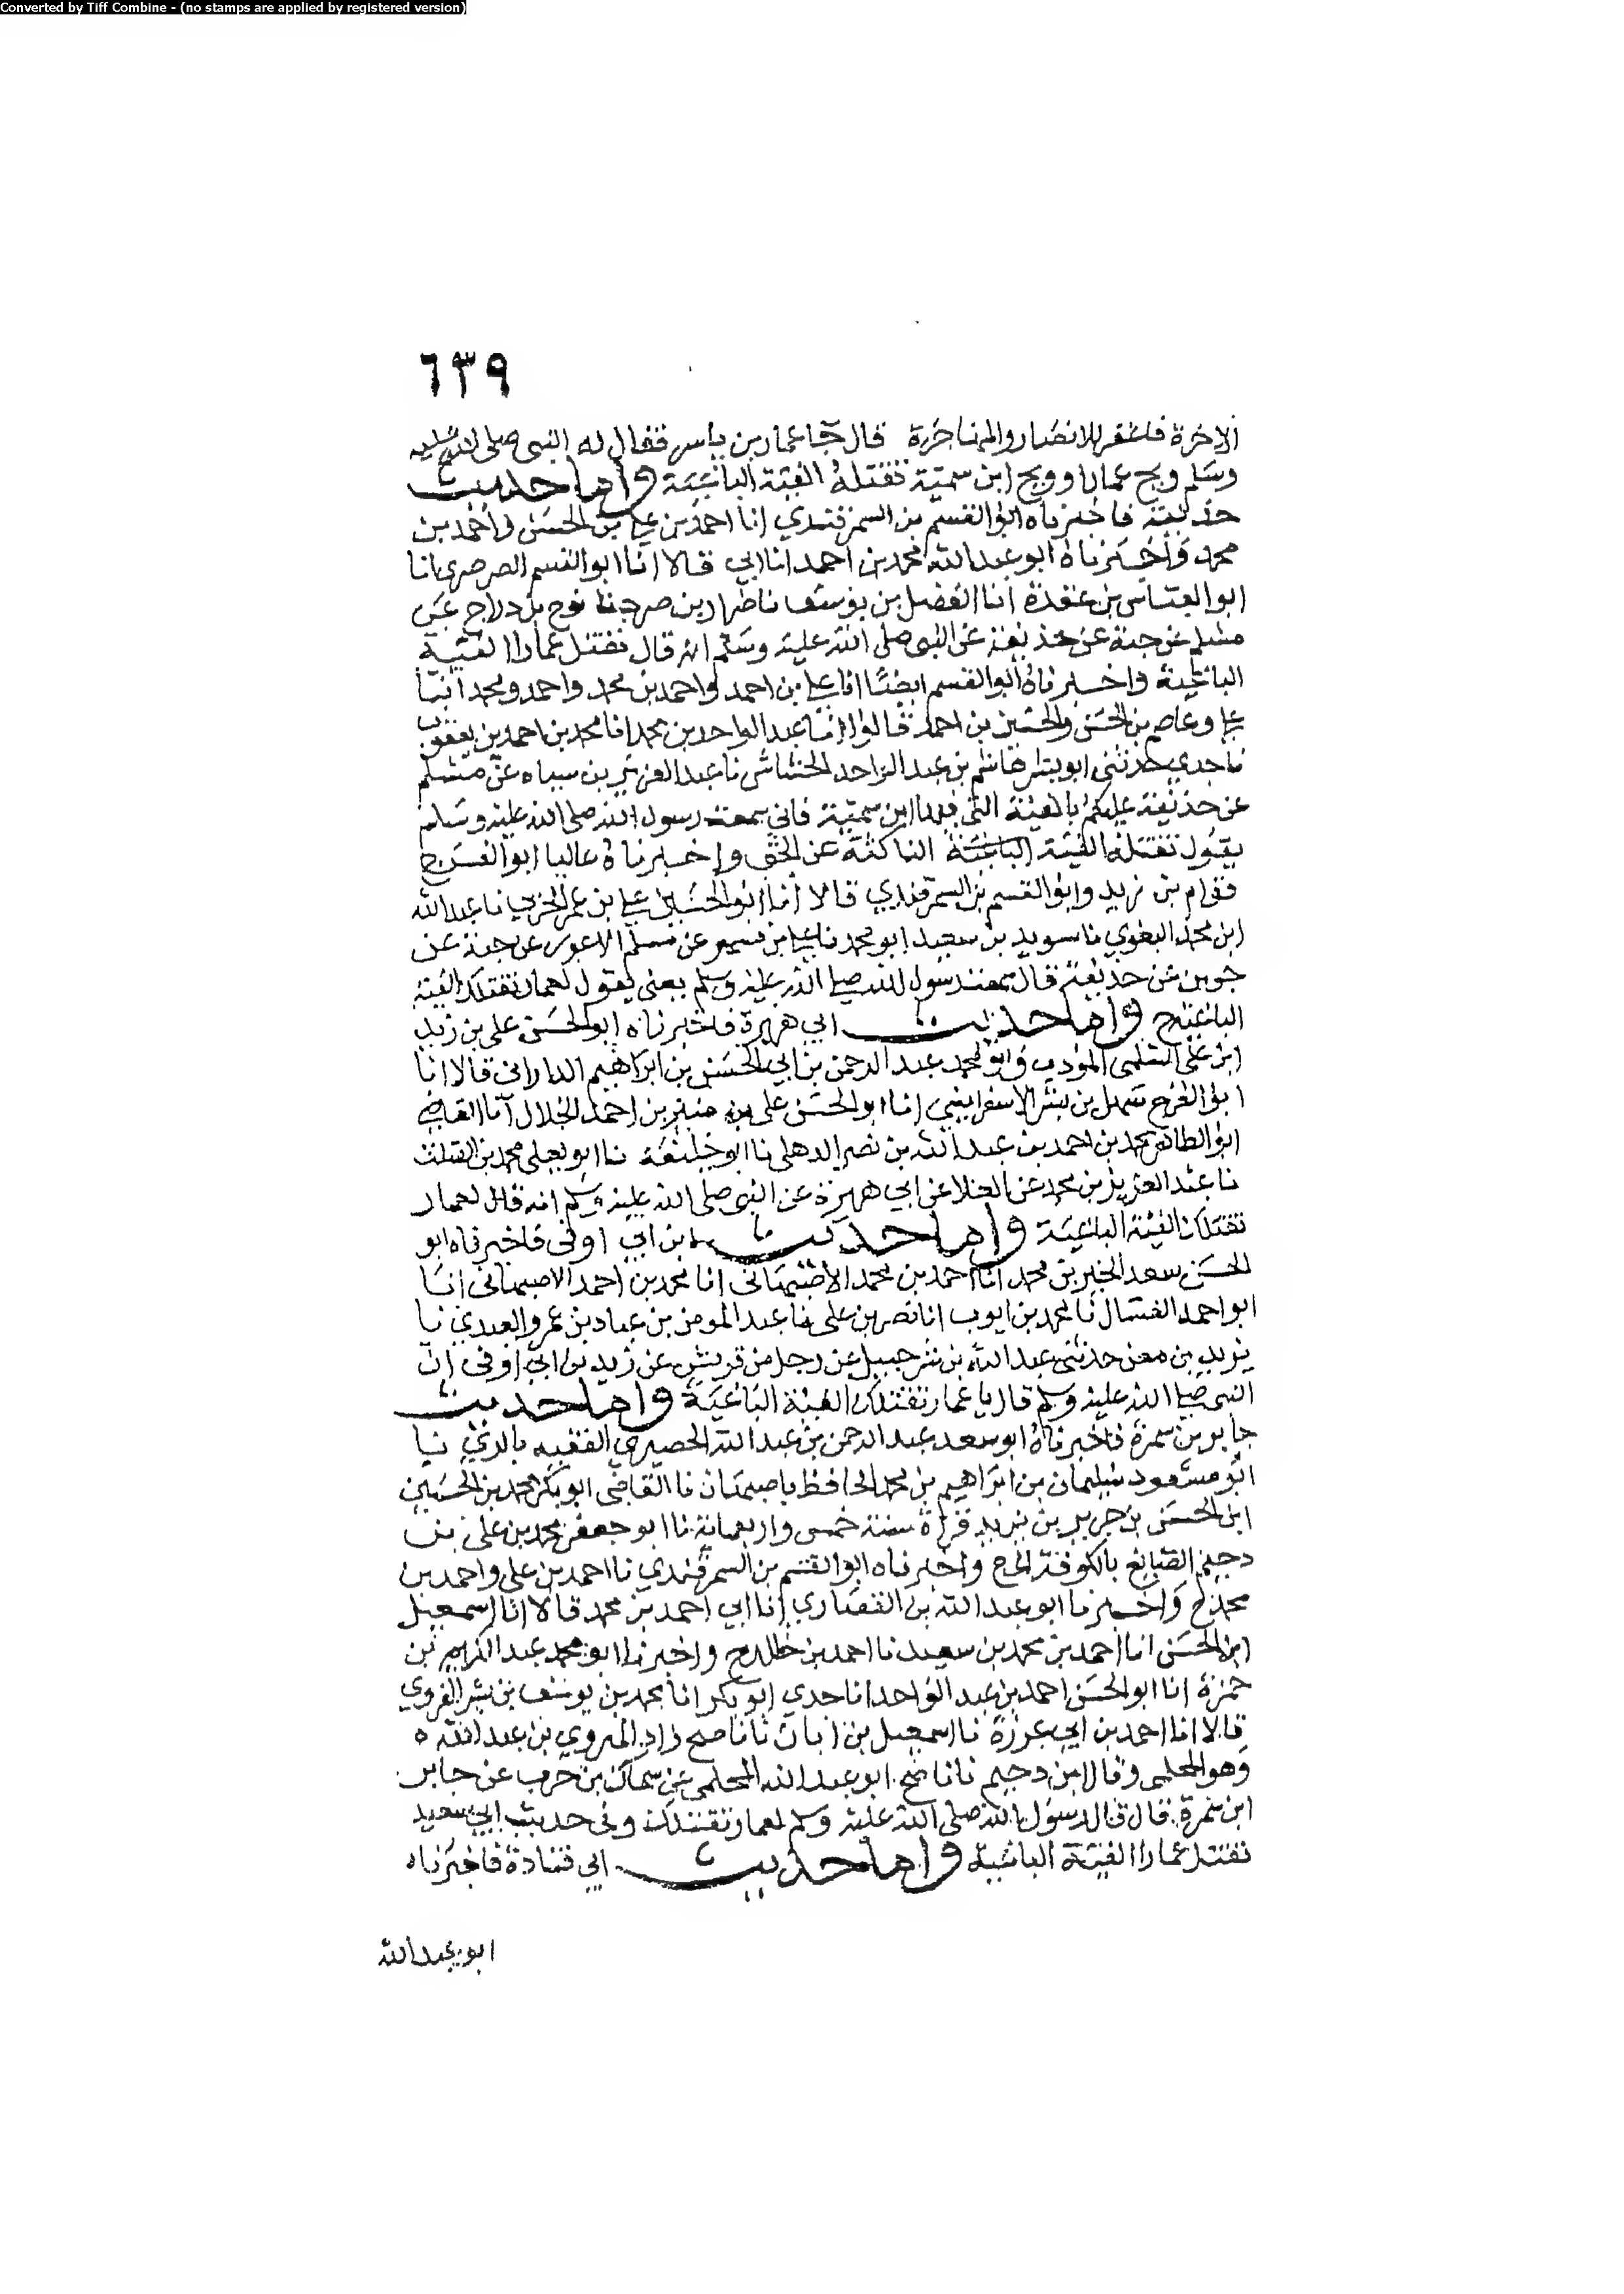 Converted by Tiff Combine - (no stamps are applied by registered version)
٦٣٩
الاخرة فاغفر للانصار والمهاجرة قال جا عمار بن ياسر فقال له النبي صلى الله عليه
وسلم ويح عمارا وويح ابن سمية تقتله الفئة الباغية واما حديث
حذيفة فاخبرناه ابو القسم بن السمرقندي انا احمد بن علي بن الحسن واحمد بن
محمد واخبرناه ابو عبد الله محمد بن احمد انا ابي قالا انا ابو القسم الصرصري انا
ابو العباس بن عقدة انا الفضل بن يوسف نا ضرار بن صرد نا نوح بن دراج عن
مسلم عن حبة عن حذيفة عن النبي صلى الله عليه وسلم انه قال تقتل عمارا الفئة
الباغية واخبرناه ابو القسم ايضا انا علي بن احمد واحمد بن محمد واحمد ومحمد ابنا
علي وعاصم بن الحسن والحسين بن احمد قالوا انا عبد الواحد بن محمد انا محمد بن احمد بن يعقوب
نا جدي حدثني ابو بشر بن عبد الواحد نا عبد العزيز بن سياه عن مسلم
عن حذيفة عليكم بالفئة التي فيها ابن سمية فاني سمعت رسول الله صلى الله عليه وسلم
يقول تقتله الفئة الباغية الناكثة عن الحق واخبرناه عاليا ابو الفرج
قوام بن زيد وابو القسم بن السمرقندي قالا انا ابو الحسين علي بن عمر الحربي نا عبد الله
ابن محمد البغوي نا سويد بن سعيد ابو محمد نا علي بن مسهر عن مسلم الاعور عن حبة عن
جوين عن حذيفة قال سمعت رسول الله صلى الله عليه وسلم يعني يقول لعمار تقتلك الفئة
الباغية ح واما حديث ابي هريرة فاخبرناه ابو الحسن علي بن زيد
ابن علي السلمي المؤدب وابو محمد عبد الرحمن بن ابي الحسن بن ابراهيم الداراني قالا انا
ابو الفرج سهل بن بشر الاسفرايني انا ابو الحسن علي بن منير بن احمد الخلال انا القاضي
ابو الطاهر محمد بن احمد بن عبد الله بن نصر الذهلي نا ابو خليفة نا ابو يعلى محمد بن الصلت
نا عبد العزيز بن محمد عن العلا عن ابي هريرة عن النبي صلى الله عليه وسلم انه قال لعمار
تقتلك الفئة الباغية واما حديث ابن ابي اوفى فاخبرناه ابو
الحسن سعد الخير بن محمد انا احمد بن محمد الاصبهاني انا محمد بن احمد الاصبهاني انا
ابو احمد العسال نا محمد بن ايوب انا نصر بن علي نا عبد المومن بن عباد بن عمرو العبدي نا
يزيد بن معن حدثني عبد الله بن شرحبيل عن رجل من قريش عن زيد بن ابي اوفى ان
النبي صلى الله عليه وسلم قال يا عمار تقتلك الفئة الباغية واما حديث
جابر بن سمرة فاخبرناه ابو سعد عبد الرحمن بن عبد الله الحصيري الفقيه بالري نا
ابو مسعود سليمان بن ابراهيم بن محمد الحافظ باصبهان نا القاضي ابو بكر محمد بن الحسين
ابن الحسن بن جرير بن يزيد قراة سنة خمس واربعماية نا ابو جعفر محمد بن علي بن
دحيم الصايغ بالكوفة ح واخبرناه ابو القسم بن السمرقندي نا احمد بن علي واحمد بن
محمد ح واخبرنا ابو عبد الله بن القصاري انا ابي احمد بن محمد قالا انا اسمعيل
ابن الحسن انا احمد بن محمد بن سعيد نا احمد بن خالد ح واخبرنا ابو محمد عبد الكريم بن
حمزة انا ابو الحسن احمد بن عبد الواحد انا جدي ابو بكر انا محمد بن يوسف بن بشر الهروي
قالا انا احمد بن ابي غرزة نا اسمعيل بن ابان نا ناصح زاد الهروي بن عبد الله ه
وهو المحلمي وقال ابن دحيم نا ناصح ابو عبد الله المحلمي عن سماك بن حرب عن جابر
ابن سمرة قال قال رسول الله صلى الله عليه وسلم لعمار تقتلك وفي حديث ابي سعيد
تقتل عمارا الفئة الباغية واما حديث ابي قتادة فاخبرناه
ابو عبد الله